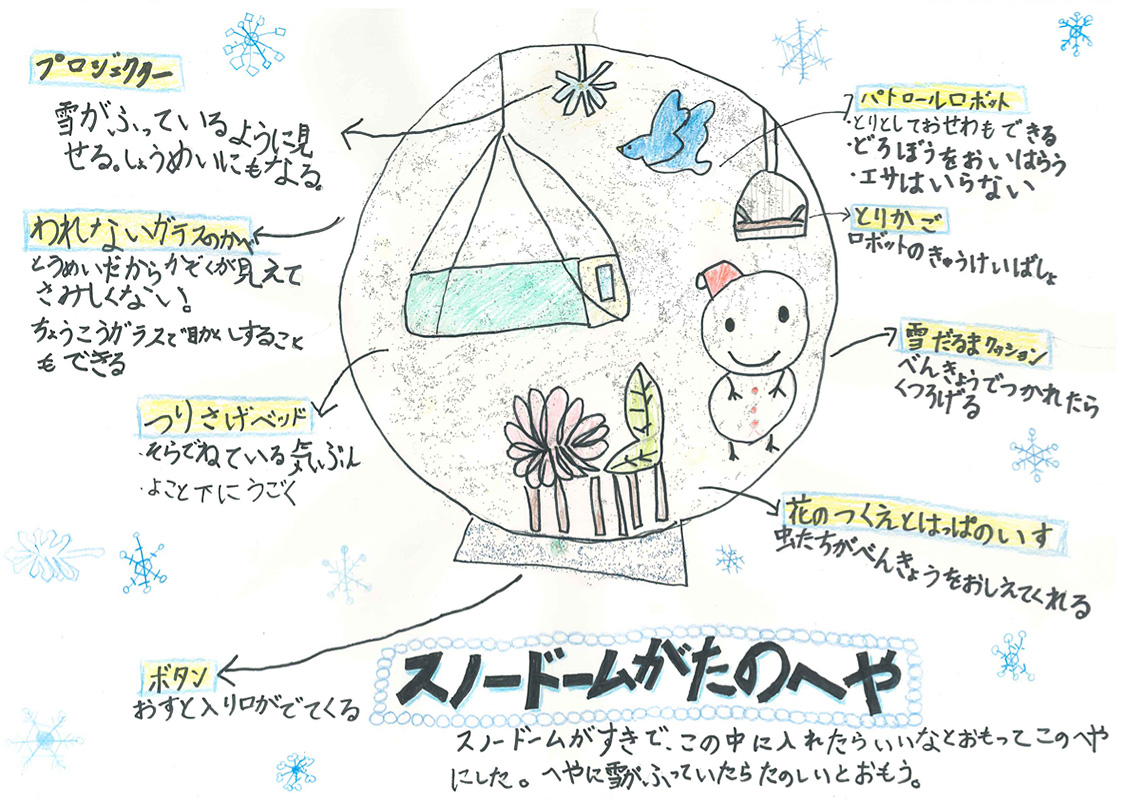 プロジェクター
雪がふっているように見
せる。しょうめいにもなる。
われないガラスのかべ
とうめいだからかぞくが見えて
さみしくない!
ちょうこうガラスで目かくしすること
もできる
つりさげベッド
・そらでねている気ぶん
・よこと下にうごく
ボタン
おすと入り口がでてくる
パトロールロボット
・とりとしておせわもできる
・どろぼうをおいはらう
・エサはいらない
とりかご
ロボットのきゅうけいばしょ
雪だるまクッション
べんきょうでつかれたら
くつろげる
花のつくえとはっぱのいす
虫たちがべんきょうをおしえてくれる
スノードームがたのへや
スノードームがすきで、この中に入れたらいいなとおもってこのへや
にした。へやに雪がふっていたらたのしいとおもう。